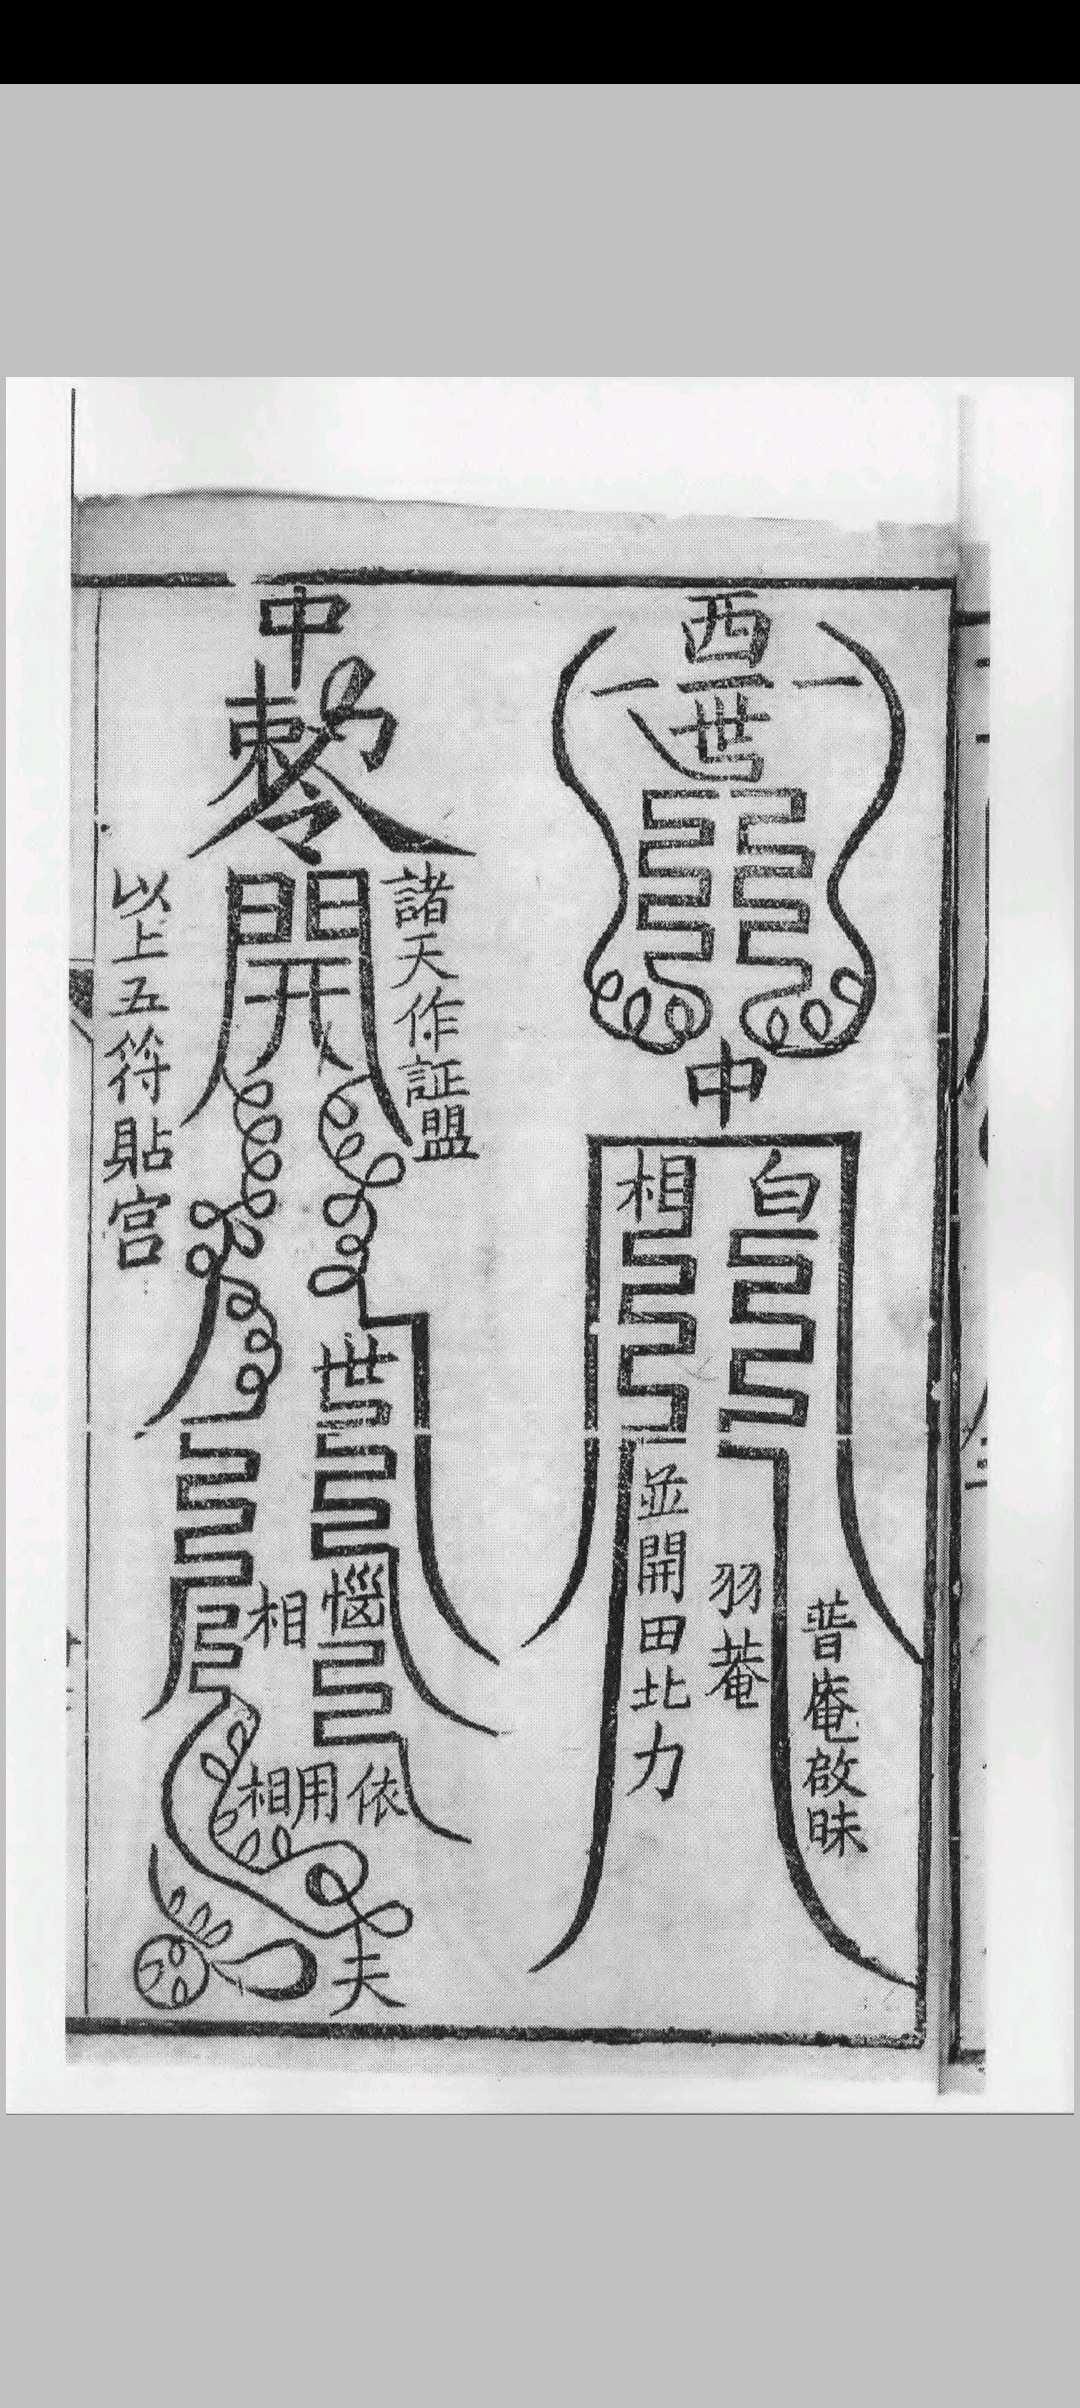 西
一二一
世
中
白
相
普庵啟昧
羽菴
並開田北力
中
敕令
開
諸天作証盟
世
惱
相
依用相
夫
以上五符貼宫